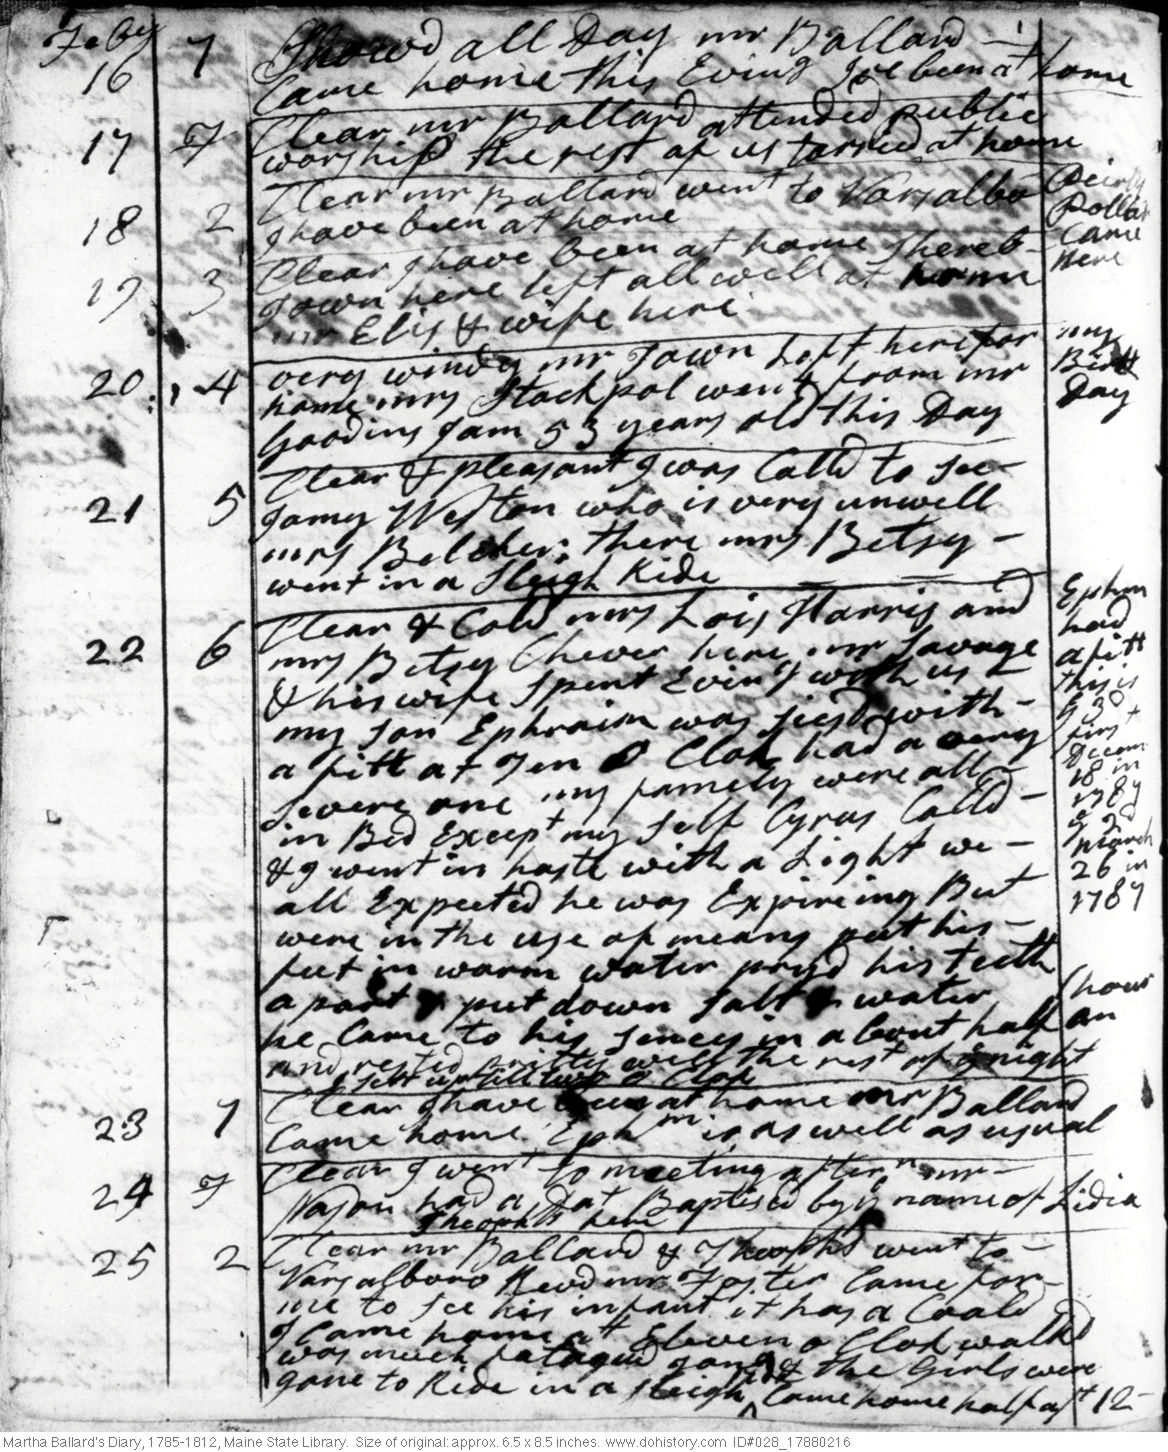 Feby
16 7 Snowd all Day mr Ballard
Came home this Eving I've been at home
17 F Clear mr Ballard attended public
worship the rest of us tarried at home
18 2 Clear mr Ballard went to Varsalbo
I have been at home
Polly
Came
here
19 3 Clear I have been at home
Town here left all well at home
mr Elis & wife here
20 4 very windy mr Town left here for
home mrs Stackpol went from mr
Goodins I am 53 years old this Day
my
Birth
Day
21 5 Clear & pleasant I was Calld to see
Jamy Weston who is very unwell
mrs Belcher there mrs Betsy
went in a Sleigh Ride
22 6 Clear & Cold mrs Lois Harris and
mrs Betsy Chever here mr Savage
& his wife Spent Eving with us
my son Ephraim was siesd with
a fitt at Ten O Clok had a very
severe one my famely were all
in Bed Except my self Cyrus Calld
& I went in hast with a Light we
all Expected he was Expireing But
were in the use of means put his
feet in warm water pryd his teeth
apart & put down salt & water
he Came to his sences in about half an
(hour
and rested pritty well the rest of ye night
I sett up till two O Clok
Ephm
had
a fitt
this is
ye 3d
first
Decem
18 in
1787
ye 2d
March
26 in
1787
23 7 Clear I have been at home mr Ballard
Came home. Ephm is as well as usual
24 F Clear I went to meeting aftern mr
Nason had a Dat Baptised by ye name of Lidia
Theophs here
25 2 Clear mr Ballard & Theophs went to
Varsalboro Revd mr Foster Came for
me to see his infant it has a Coald
I Came home at Eleven o Clok walkd
was much fatagud & the Girls were
gone to Ride in a sleigh Came home half past 12
Martha Ballard's Diary, 1785-1812, Maine State Library. Size of original: approx. 6.5 x 8.5 inches. www.dohistory.com ID#028_17880216